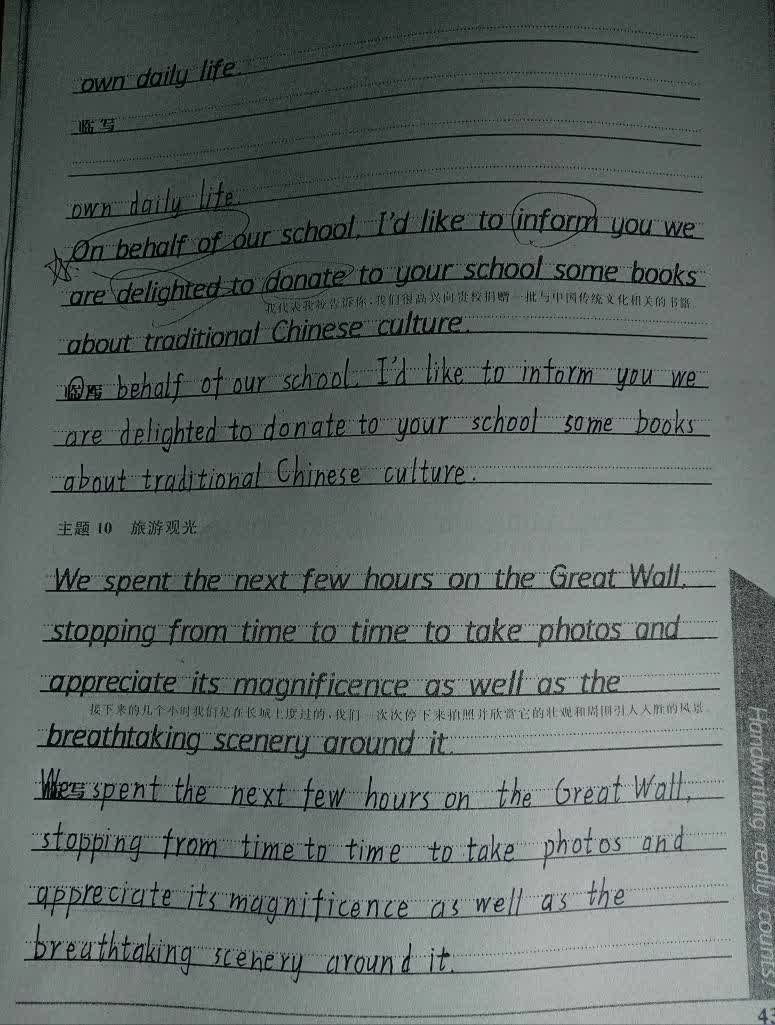 own daily life.
临写
own daily life.
On behalf of our school, I'd like to inform you we
are delighted to donate to your school some books
我代表我校告诉你,我们很高兴向贵校捐赠一批与中国传统文化相关的书籍
about traditional Chinese culture.
临写
On behalf of our school, I'd like to inform you we
are delighted to donate to your school some books
about traditional Chinese culture.
主题 10 旅游观光
We spent the next few hours on the Great Wall,
stopping from time to time to take photos and
appreciate its magnificence as well as the
接下来的几个小时我们是在长城上度过的,我们一次次停下来拍照并欣赏它的壮观和周围引人入胜的风景
breathtaking scenery around it.
临写
We spent the next few hours on the Great Wall,
stopping from time to time to take photos and
appreciate its magnificence as well as the
breathtaking scenery around it.
Handwriting really counts!